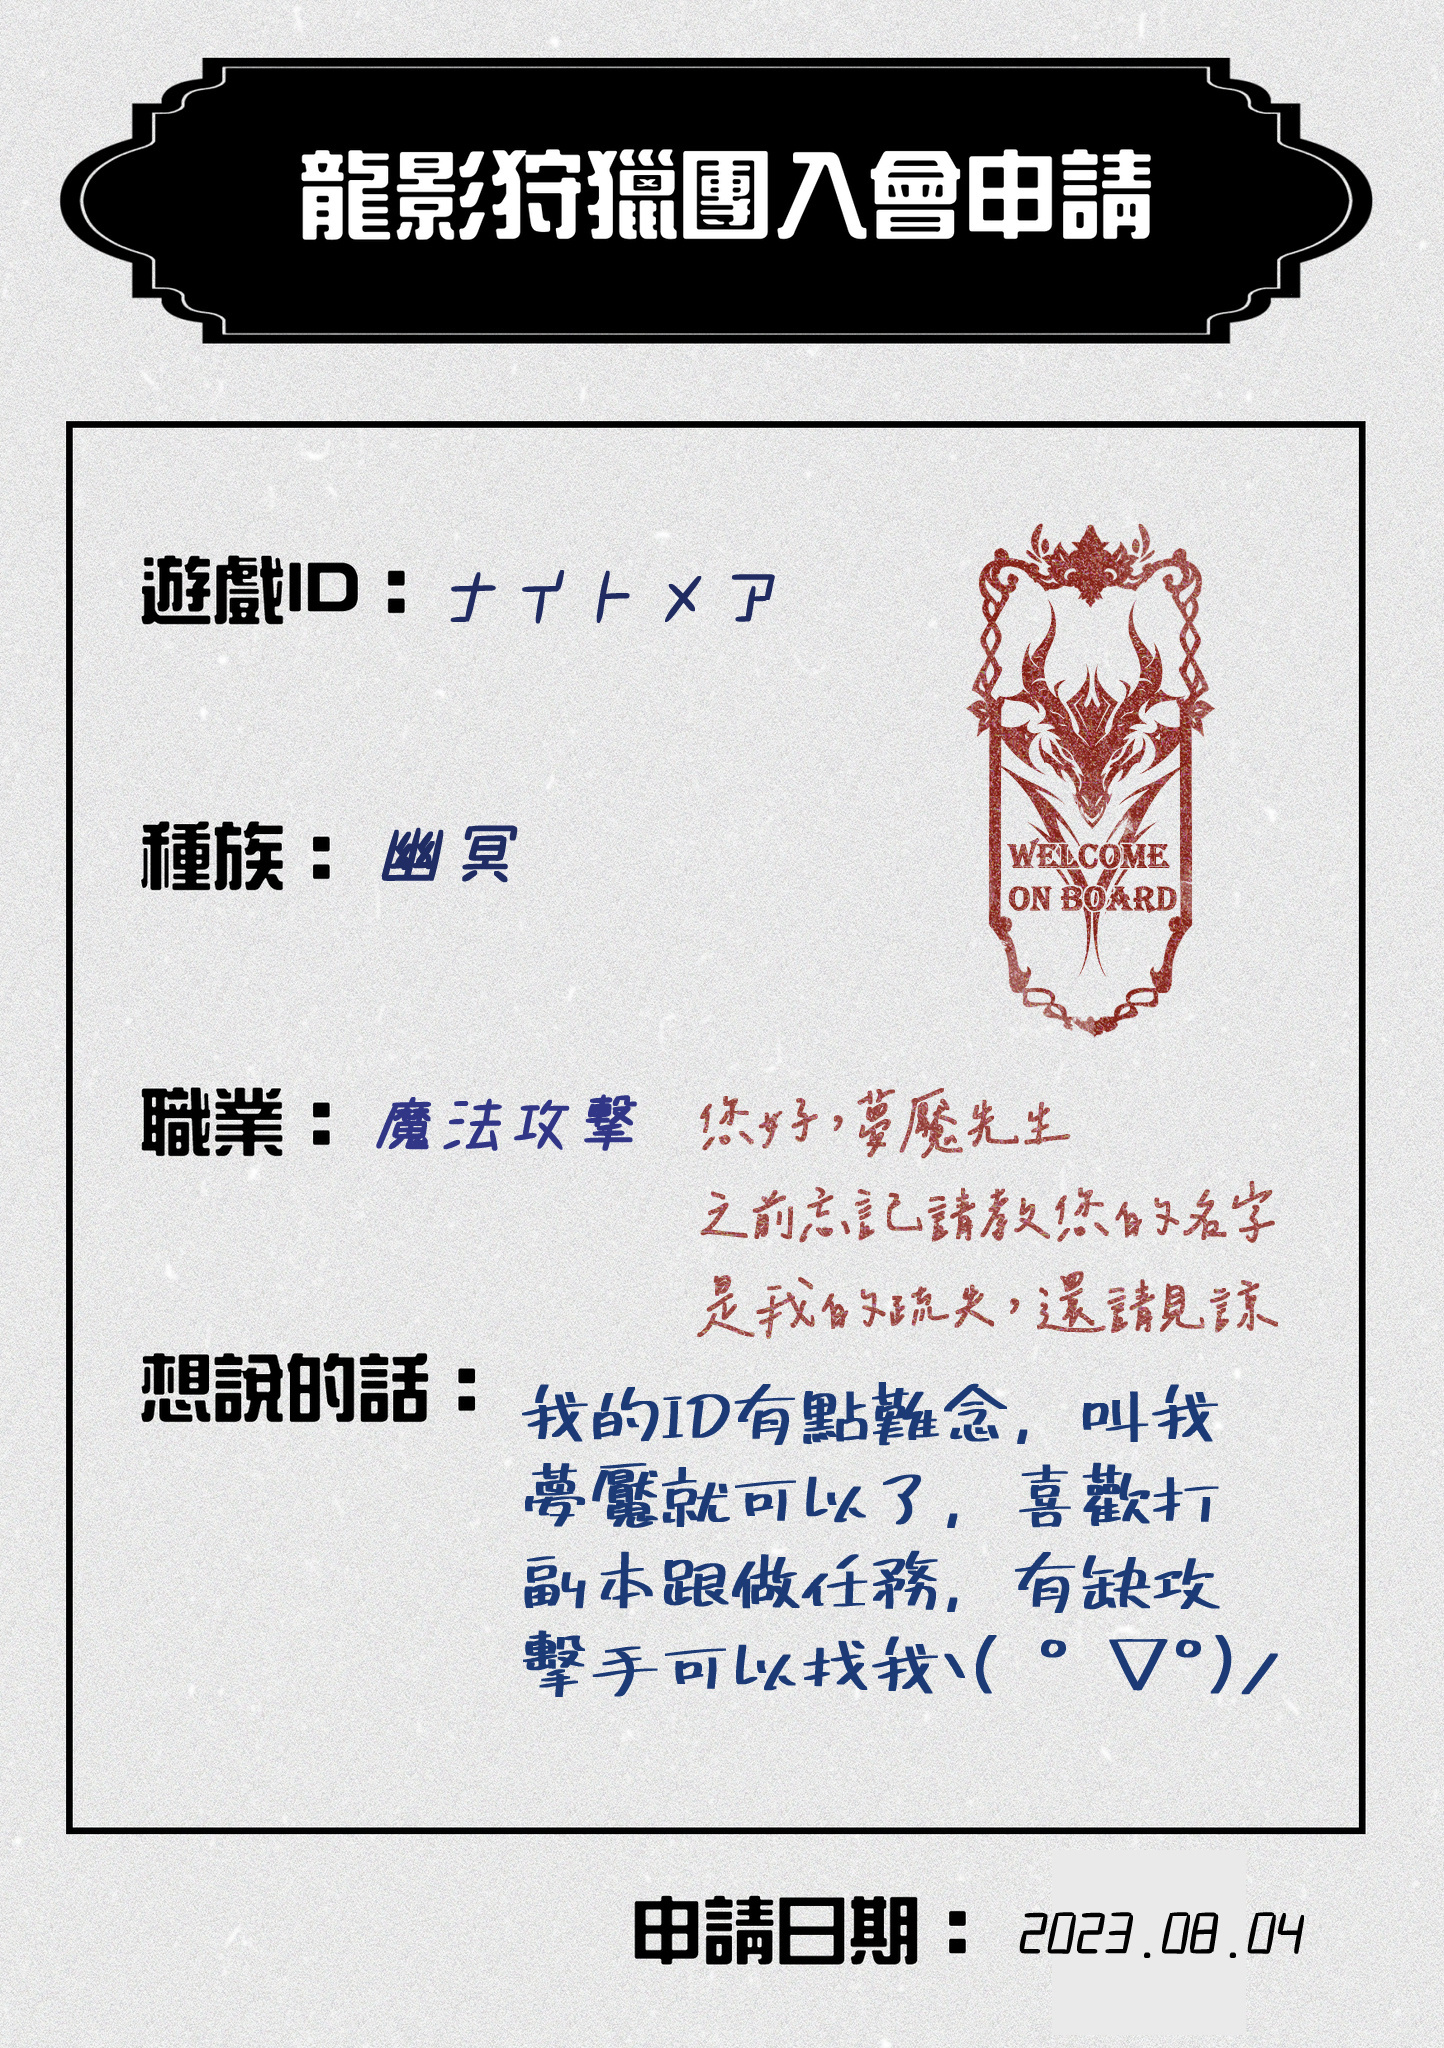 龍影狩獵團入會申請
遊戲ID：ナイトメア
種族：幽冥
WELCOME
ON BOARD
職業：魔法攻擊
您好，夢魘先生
之前忘記請教您的名字
是我的疏失，還請見諒
想說的話：
我的ID有點難念, 叫我
夢魘就可以了, 喜歡打
副本跟做任務, 有缺攻
擊手可以找我ヽ( ° ▽°)/
申請日期：2023.08.04